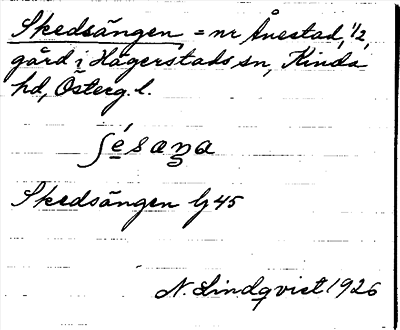 Skedsängen, = nr Ånestad, 1/2,
gård i Hägerstads sn, Kinda
hd, Österg. l.
ʃésaŋa
Skedsängen lj 45
N. Lindqvist 1926